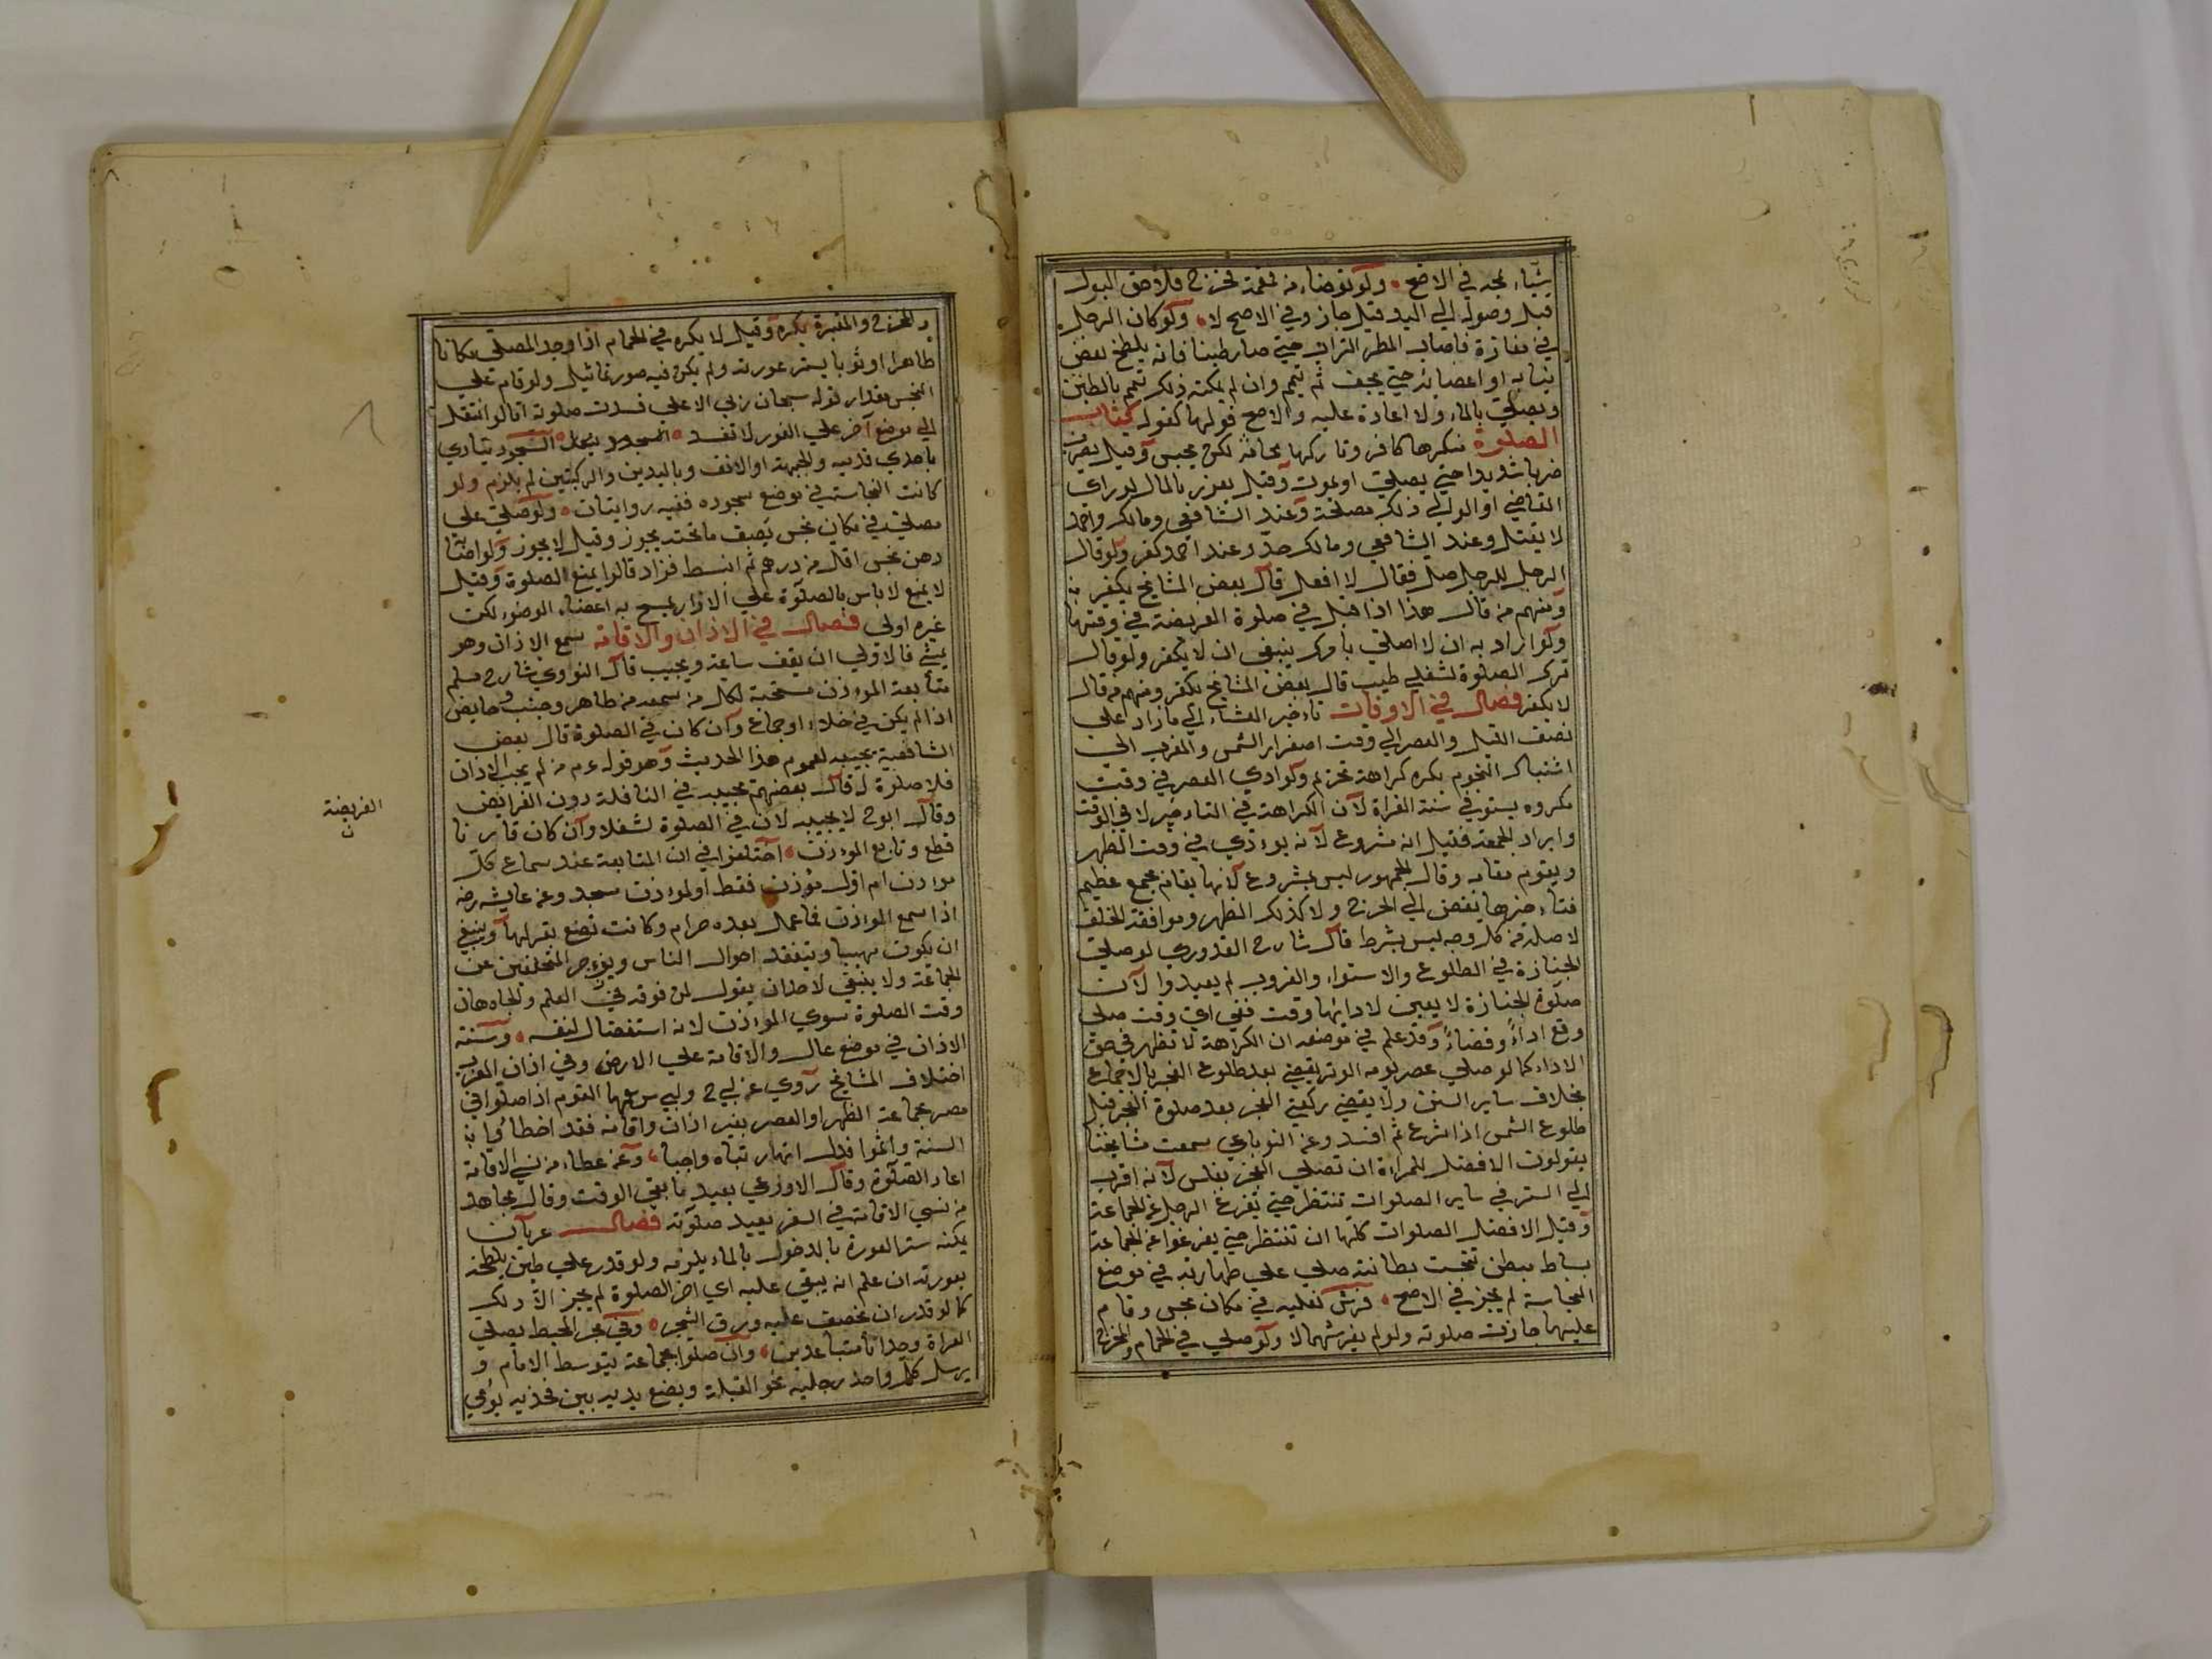 شيئا، يجه في الاصح ولو توضاء من قمقمة فخرج فلاحق البول
قبل وصوله الي اليد قيل جاز وفي الاصح لا، ولو كان الرجل
في مفازة فاصاب المطر التراب حتي صار طينا فانه يلطخ بعض
ثيابه او اعضائه حتي يجف ثم تيمم وان لم يمكنه ذلك تيمم بالطين
ويصلي بالماء ولا اعادة عليه والاصح قولهما كقوله كتاب
الصلوة منكرها كافر وتاركها مجانة لكن يحبس وقيل يضرب
ضربا شديدا حتي يصلي او يموت وقيل يعزر بالمال لو راي
القاضي او الوالي ذلك مصلحة وعند الشافعي ومالك واحمد
لا يقتل وعند الشافعي ومالك حد وعند احمد كفر ولو قال
الرجل للرجل صل فقال لا افعل قال بعض المشايخ يكفر به
ومنهم من قال هذا اذا قيل في صلوة الفريضة في وقتها
ولو اراد به ان لا اصلي بامرك ينبغي ان لا يكفر ولو قال
ترك الصلوة لشغلي طيب قال بعض المشايخ يكفر ومنهم من قال
لا يكفر فصل في الاوقات تاءخير العشاء الي ما زاد علي
نصف الليل والعصر الي وقت اصفرار الشمس والمغرب الي
اشتباك النجوم يكره كراهة تحريم ولو ادي العصر في وقت
مكروه يستوفي سنة القراة لان الكراهة في التاءخير لا في الوقت
وابراد الجمعة فقيل انه مشروع لانه يوءدي في وقت الظهر
ويقوم مقامه وقال الجمهور ليس بمشروع لانها يقام بجمع عظيم
فتاءخيرها يفضي الي الحرج ولا كذلك الظهر وموافقة الخلف
لاصله من كل وجه ليس بشرط قال شارح القدوري لو صلي
الجنازة في الطلوع والاستواء والغروب لم يعيدوا لان
صلوة الجنازة لا يعين لادايها وقت ففي اي وقت صلي
وقع اداءً وقضاءً وقد علم في موضعه ان الكراهة لا تظهر في حق
الاداء كما لو صلي عصر يومه الوتر يقضي بعد طلوع الفجر بالاجماع
بخلاف ساير السنن ولا يقضي ركعتي الفجر بعد صلوة الفجر قبل
طلوع الشمس اذا شرع ثم افسد وعن النوباي سمعت مشايخنا
يقولون الافضل للمراة ان تصلي الفجر بغلس لانه اقرب
الي الستر في ساير الصلوات تنتظر حتي تفرغ الرجل عن الجماعة
وقيل الافضل الصلوات كلها ان تنتظر حتي يفرغوا عن الجماعة
بساط مبطن تنجست بطانته صلي علي ظهارته في موضع
النجاسة لم يجز في الاصح فرش نعليه في مكان نجس وقام
عليهما جازت صلوته ولو لم يفرشهما لا ولو صلي في الحمام والمخرج
والمخرج والمقبرة يكره وقيل لا يكره في الحمام اذا وجد المصلي مكانا
طاهرا او ثوبا يستر عورته ولم يكن فيه صور تماثيل ولو قام علي
النجس مقدار قوله سبحان ربي الاعلي فسدت صلوته اما لو انتقل
الي موضع آخر علي الفور لا تفسد السجود يتادي
باحدي قدميه والجبهة او الانف وباليدين والركبتين لم يلزم ولو
كانت النجاسة في موضع سجوده ففيه روايتان ولو صلي علي
مصلي في مكان نجس يصف ما تحته يجوز وقيل لا يجوز ولو اصابه
دهن نجس اقل من درهم ثم انبسط فزاد قالوا يمنع الصلوة وقيل
لا يمنع لا باس بالصلوة علي الازار يمسح به اعضاء الوضوء لكن
غيره اولي فصل في الاذان والاقامة سمع الاذان وهو
يمشي فالاولي ان يقف ساعة ويجيب قال النووي شارح مسلم
متابعة الموءذن مستحبة لكل من سمعه من طاهر وجنب وحايض
اذا لم يكن في خلاء او جماع وان كان في الصلوة قال بعض
الشافعية يجيبه لعموم هذا الحديث وهو قوله عم من لم يجب الاذان
فلا صلوة له قال بعضهم يجيبه في النافلة دون الفرايض
وقال ابو ح لا يجيبه لان في الصلوة لشغلا وان كان قاريا
قطع وتابع الموءذن اختلفوا في ان المتابعة عند سماع كل
موءذن ام اول مؤذن فقط او لموءذن مسجد وعن عايشة رضه
اذا سمع الموءذن فما عمل بعده حرام وكانت تضع بغزلها وينبغي
ان يكون مهيبا ويتفقد احوال الناس ويزجر المتخلفين عن
الجماعة ولا ينبغي لاحد ان يقول لمن فوقه في العلم والجاه حان
وقت الصلوة سوي الموءذن لانه استفضال لنفسه وسنة
الاذان في موضع عال والاقامة علي الارض وفي اذان المغرب
اختلاف المشايخ روي عن ابي ح وابي س عنهما القوم اذا صلوا في
مصر بجماعة الظهر او العصر بغير اذان واقامة فقد اخطاوا به
السنة واثموا قيل انهما رتباه واجبا، وعن عطاء من نسي الاقامة
اعاد الصلوة وقال الاوزعي يعيد ما بقي الوقت وقال مجاهد
من نسي الاقامة في السفر يعيد صلوته فصل عريان
يمكنه ستر العورة بالدخول بالماء يلزمه ولو قدر علي طين يلطخه
بعورته ان علم انه يبقي عليه اي آخر الصلوة لم يجز الا ذلك
كما لو قدر ان يخصف عليه ورق الشجر وفي بحر المحيط يصلي
العراة وحدانا متباعدين، وان صلوا بجماعة يتوسط الامام و
يرسل كل واحد رجليه نحو القبلة ويضع يديه بين فخذيه يومي
الفريضة
ن